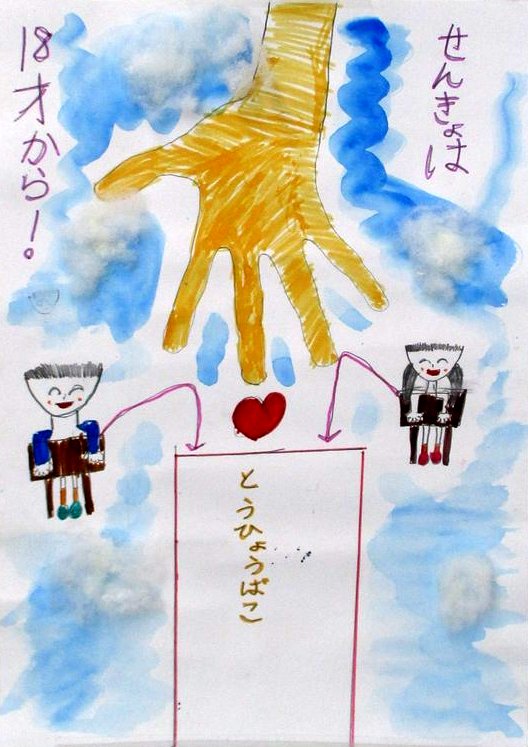 せんきょは
18才から!
とうひょうばこ